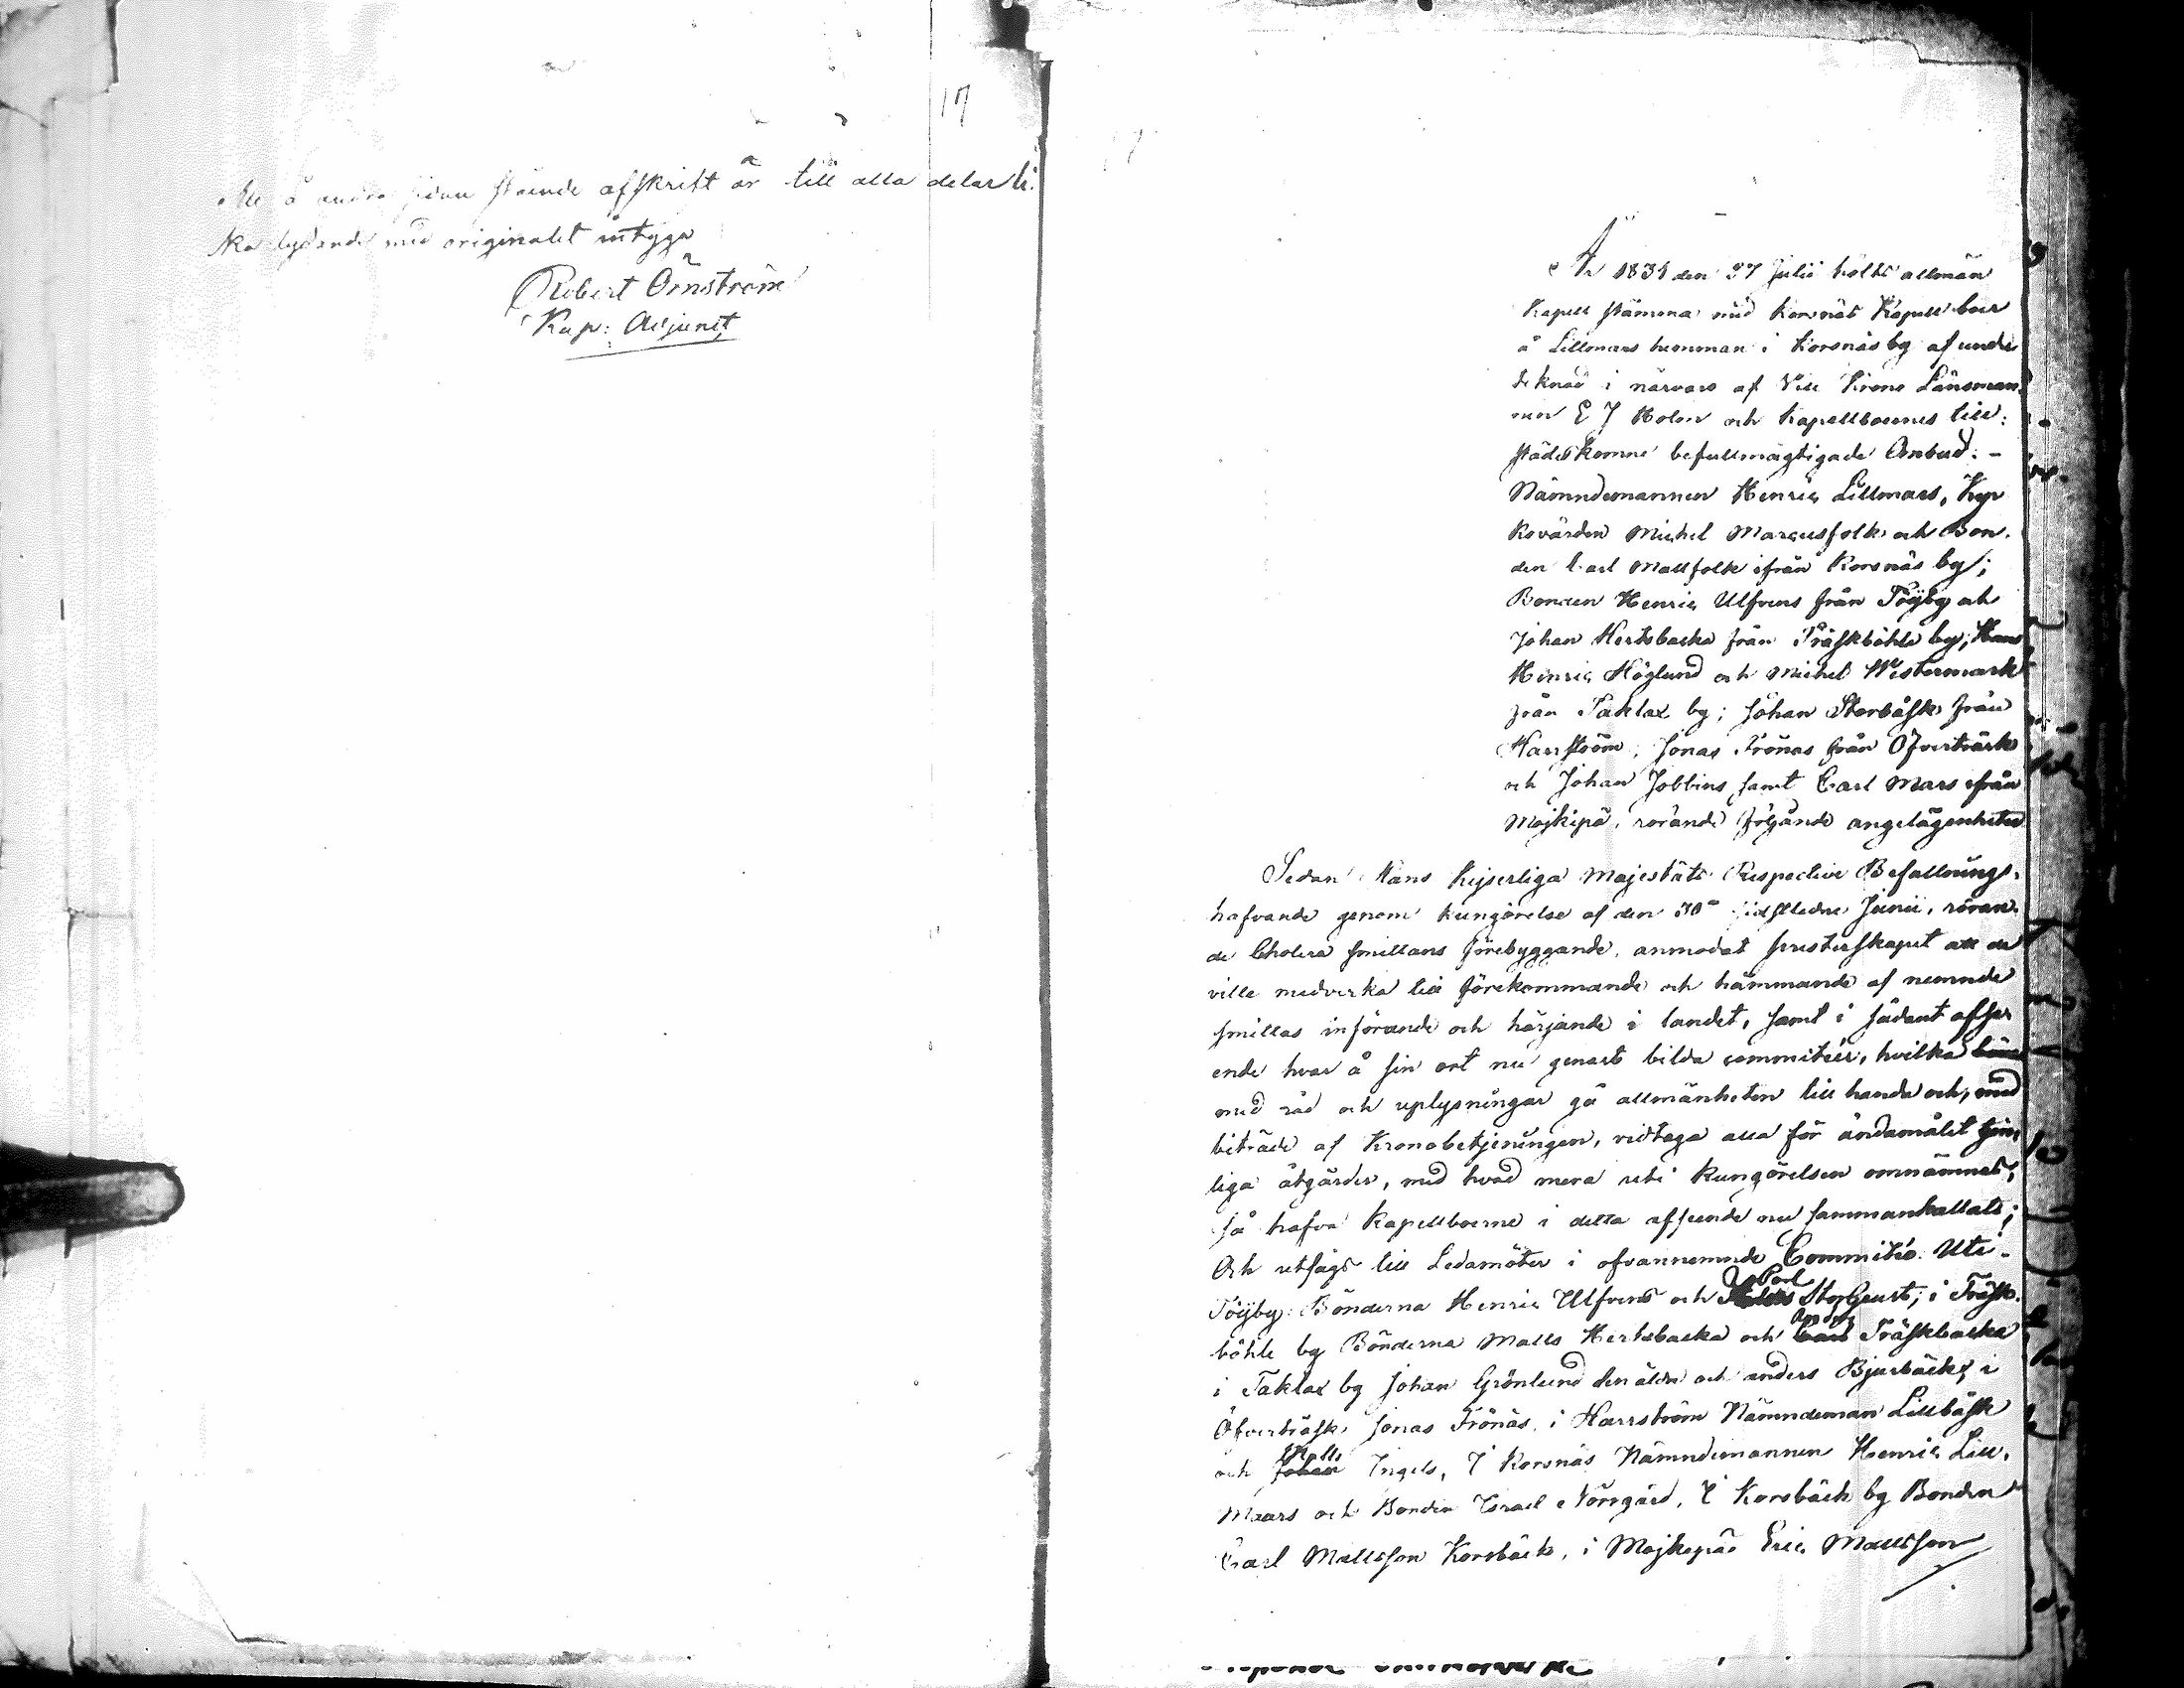 17
å andra sidan stående afskrift är till alla delar li-
ka lydande med originalet intyga
Robert Örnström
Kap: Adjunct
År 1831 den 27 Julii hölts allmän
Kapell stämma med Korsnäs Kapellboer
å Lillmars hemman i Korsnäs by af under
teknad i närvaro af Vice Krono Länsman
nen E J Holm och Kapellboernes till-
städeskomne befullmägtigade Ombud: -
Nämndemannen Henric Lillmars, Kyr
kovärden Michel Marcusfolk och Bon-
den Carl Mattfolk ifrån Korsnäs by;
Bonden Henric Ulfvens från Töjby och
Johan Hertsbacka från Träskböhle by; Hans
Henric Höglund och Michel Westermark
från Taklax by; Johan Storbåsk från
Harrström, Jonas Frönäs från Öfverträsk
och Johan Jobbins samt Carl Mars ifrån
Mojkipä, rörande följande angelägenheter
Sedan Hans Kejserliga Majestäts Respective Befallnings-
hafvande genom kungörelse af den 30 sidstledne Junii, röran-
de Cholera smittans förebyggande, anmodat presterskapet att de
ville medverka till förekommande och hämmande af nemnde
smittas införande och härjande i landet, samt i sådant afse
ende hvar å sin ort nu genast bilda committéer, hvilka böra
med råd och uplysningar gå allmänheten till handa och, med
biträde af Kronobetjeningen, vidtaga alla för ändamålet tjen-
liga åtgärder, med hvad mera uti kungörelsen omnämnes;
så hafva Kapellboerne i detta afseende nu sammankallats;
Och utsågs till Ledamöter i ofvannemnde Committé. Uti
Töjby: Bönderna Henric Ulfvens och Storgeust; i Träsk-
böhle by Bönderna Matts Hertsbacka och Anders Träskbacka
i Taklax by Johan Grönlund den äldre och anders Bjurbäck; i
Öfverträsk Jonas Frönäs, i Harrström Nämndeman Lillbåsk
och Matts Ingels, I Korsnäs Nämndemannen Henric Lill-
Maars och Bonden Israel Norrgård, I Korsbäck by Bonden
Carl Mattsson Korsbäck, i Mojkepää Eric Mattsson